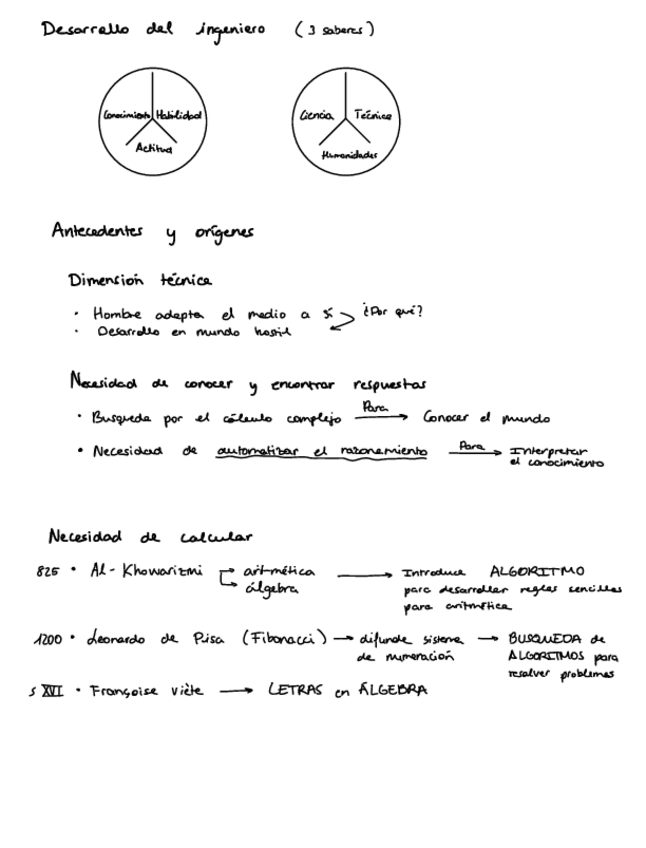 Desarrollo del ingeniero (3 saberes)
Conocimiento Habilidad
Actitud
Ciencia Técnica
Humanidades
Antecedentes y orígenes
Dimensión técnica
· Hombre adapta el medio a sí ¿Por qué?
· Desarrollo en mundo hostil
Necesidad de conocer y encontrar respuestas
· Busqueda por el cálculo complejo Para → Conocer el mundo
· Necesidad de automatizar el razonamiento Para → Interpretar
el conocimiento
Necesidad de calcular
825 · Al-Khowarizmi → aritmética → Introduce ALGORITMO
→ álgebra para desarrollar reglas sencillas
para aritmética
1200 · Leonardo de Pisa (Fibonacci) → difunde sistema → BUSQUEDA de
de numeración ALGORITMOS para
resolver problemas
s XVI · Françoise viète → LETRAS en ÁLGEBRA